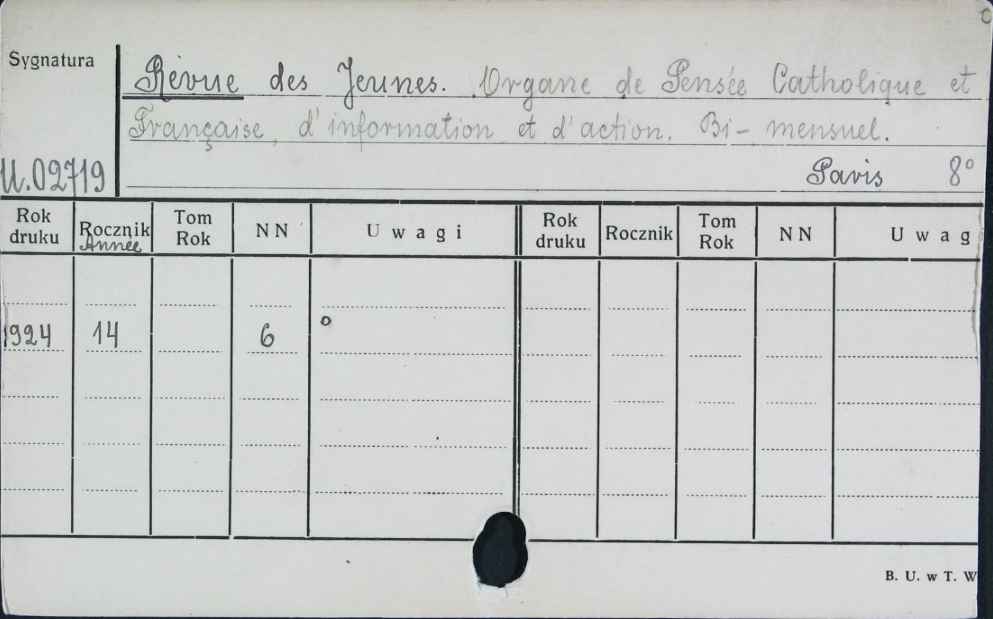 Sygnatura
Révue des Jeunes. Organe de Pensée Catholique et
Française, d'information et d'action. Bi-mensuel.
U.02719 Paris 8°
Rok druku Rocznik Année Tom Rok NN Uwagi Rok druku Rocznik Tom Rok NN Uwag
1924 14 6 o
B. U. w T. W